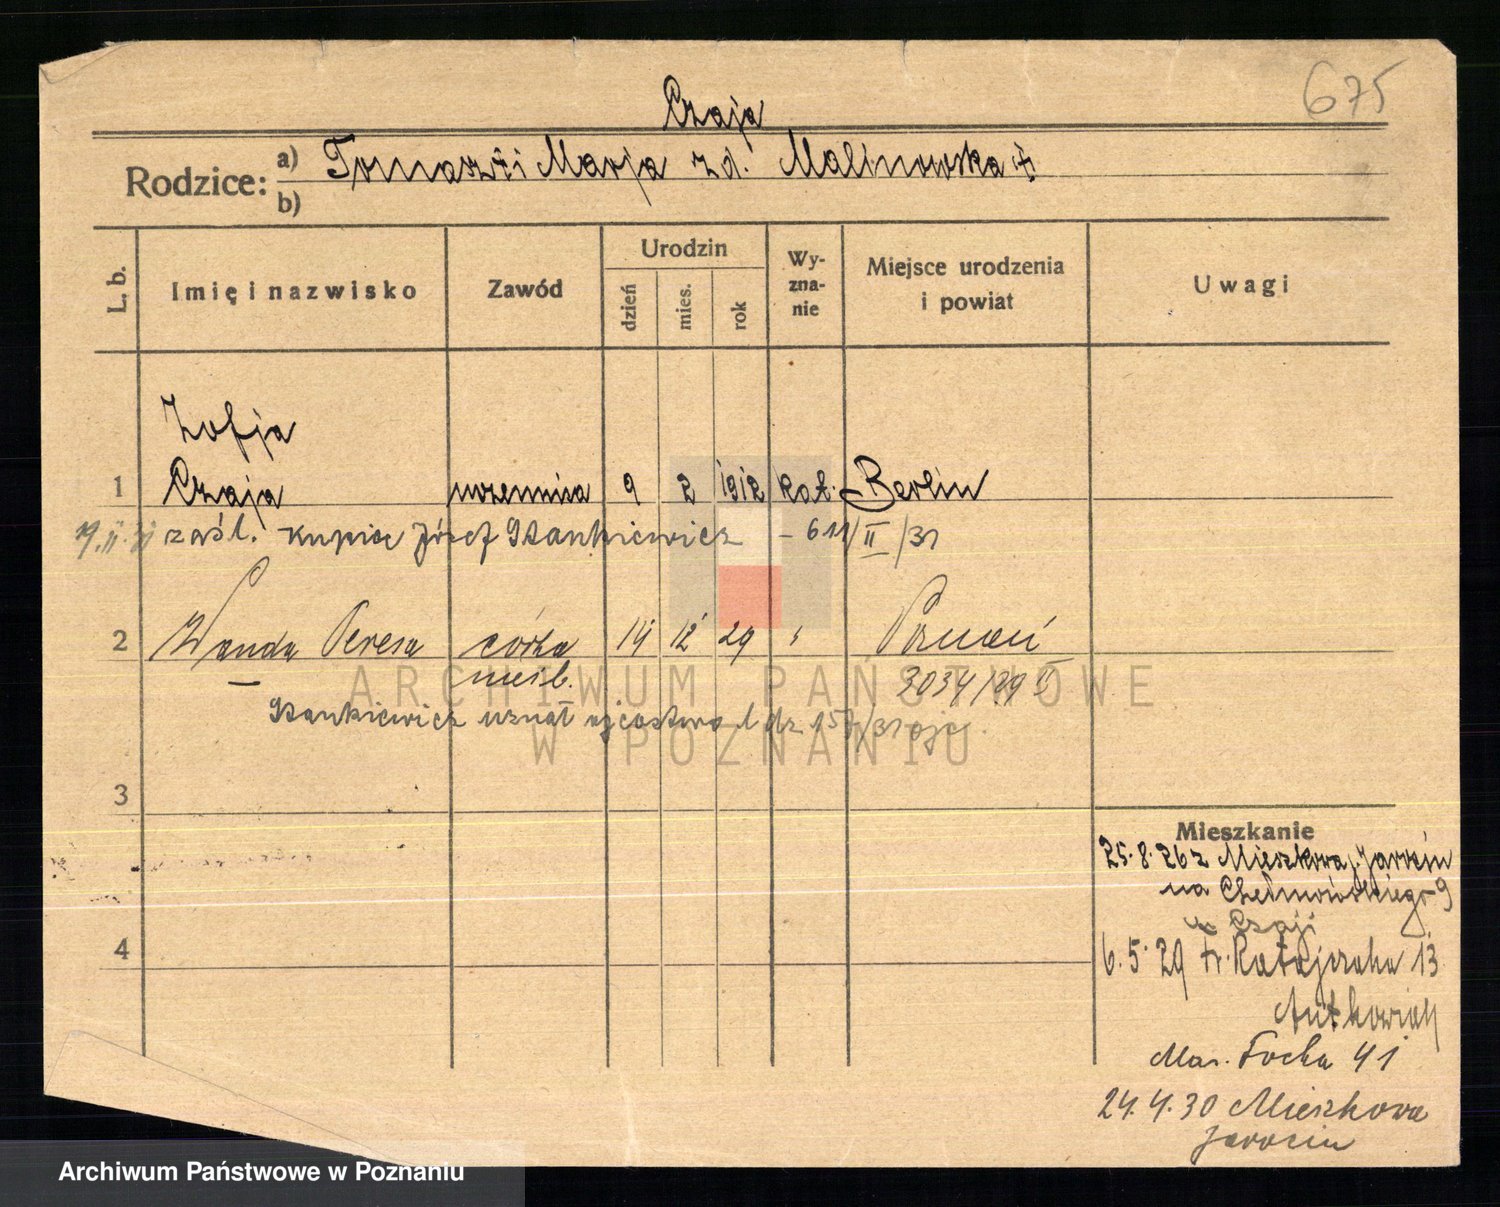 675
Czaja
Rodzice: a) Tomasz i Marja zd. Malinowska
b)
L. b.
Imię i nazwisko
Zawód
Urodzin
dzień
mies.
rok
Wy-
zna-
nie
Miejsce urodzenia
i powiat
Uwagi
Zofja
1 Czaja uczennica 9 2 1912 kat. Berlin
zaśl. kupiec Józef Stankiewicz – 611/II/31
2 Wanda Teresa córka 14 12 29 " Poznań
nieśl. 3034/29
Stankiewicz uznał ojcostwo
3
4
Mieszkanie
25.8.26 z Mieszkowa, Jarocin
na Chełmońskiego 9
u Czaji
6.5.29 Fr. Ratajczaka 13
Antkowiak
Mar. Focha 41
24.4.30 Mieszkowa
Jarocin
ARCHIWUM PAŃSTWOWE
W POZNANIU
Archiwum Państwowe w Poznaniu